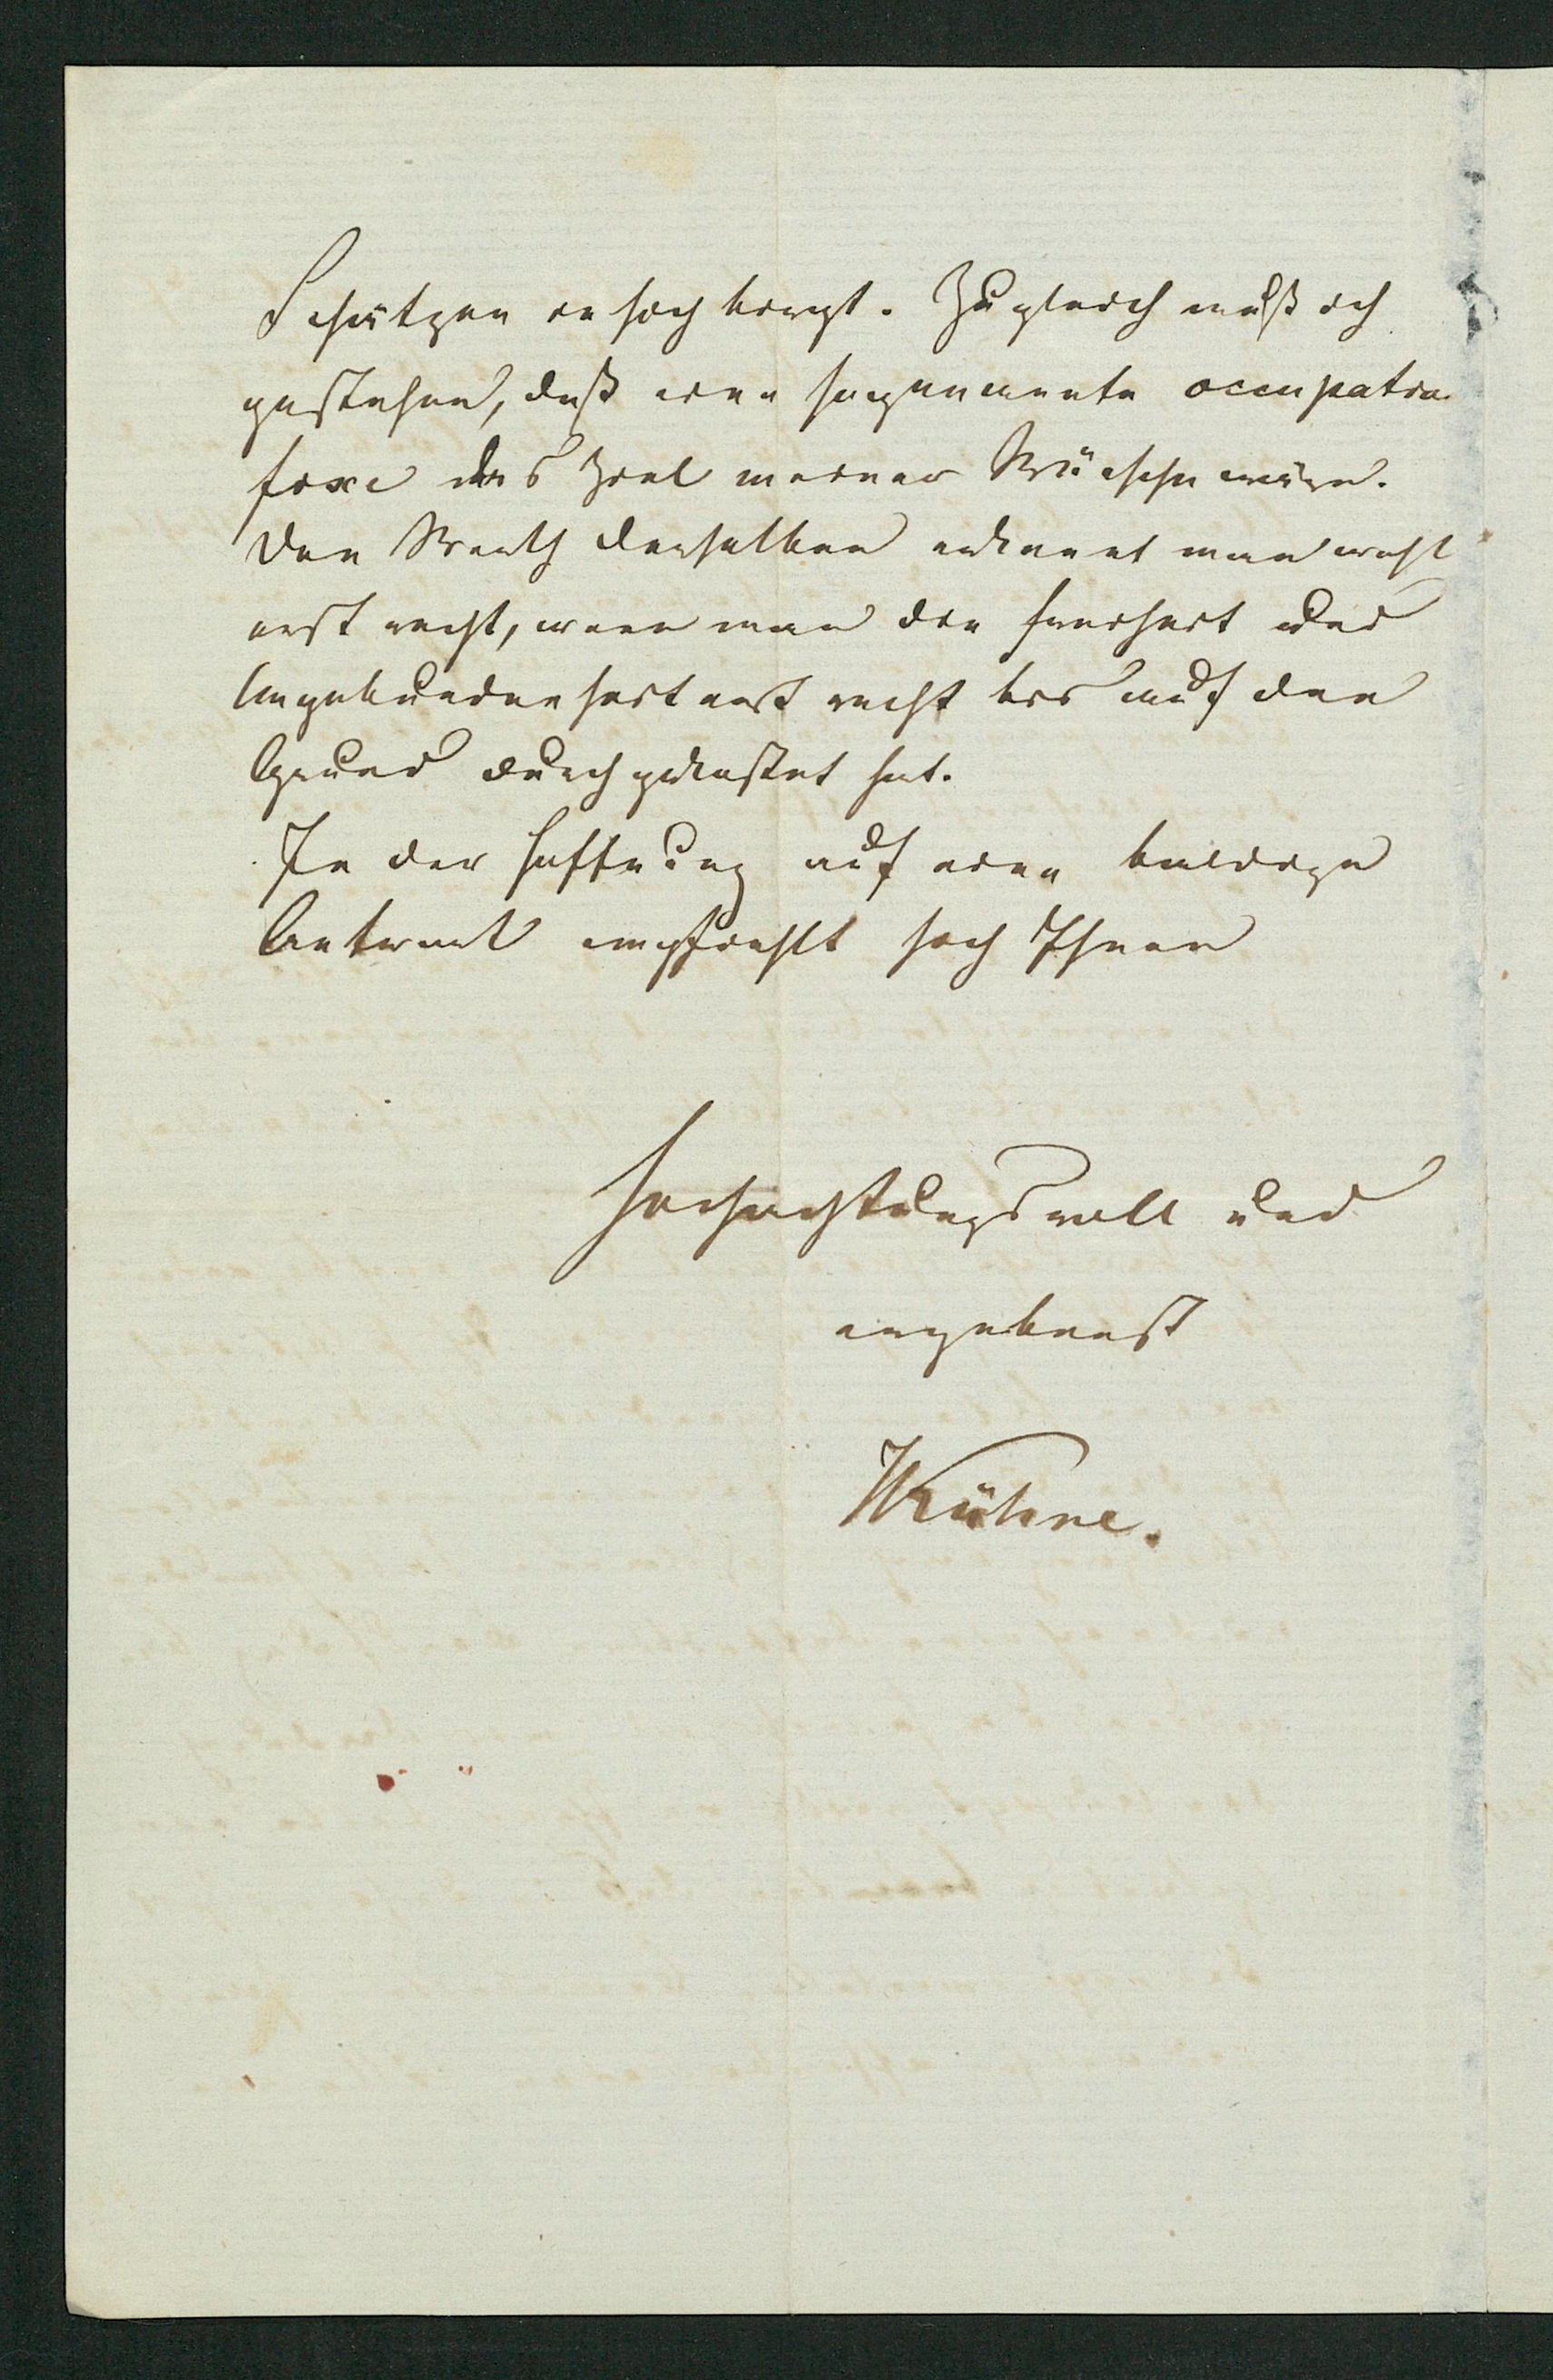 Schätzen in sich birgt. Zugleich muß ich
gestehen, daß eine sogenannte occupatio
fixe das Ziel meiner Wünsche wäre.
Den Werth derselben erkennt man wohl
erst recht, wenn man die Freiheit und
Ungebundenheit erst recht bis auf den
Grund durchgekostet hat.
In der Hoffnung auf eine baldige
Antwort empfiehlt sich Ihnen
hochachtungsvoll und
ergebenst
Kühne.